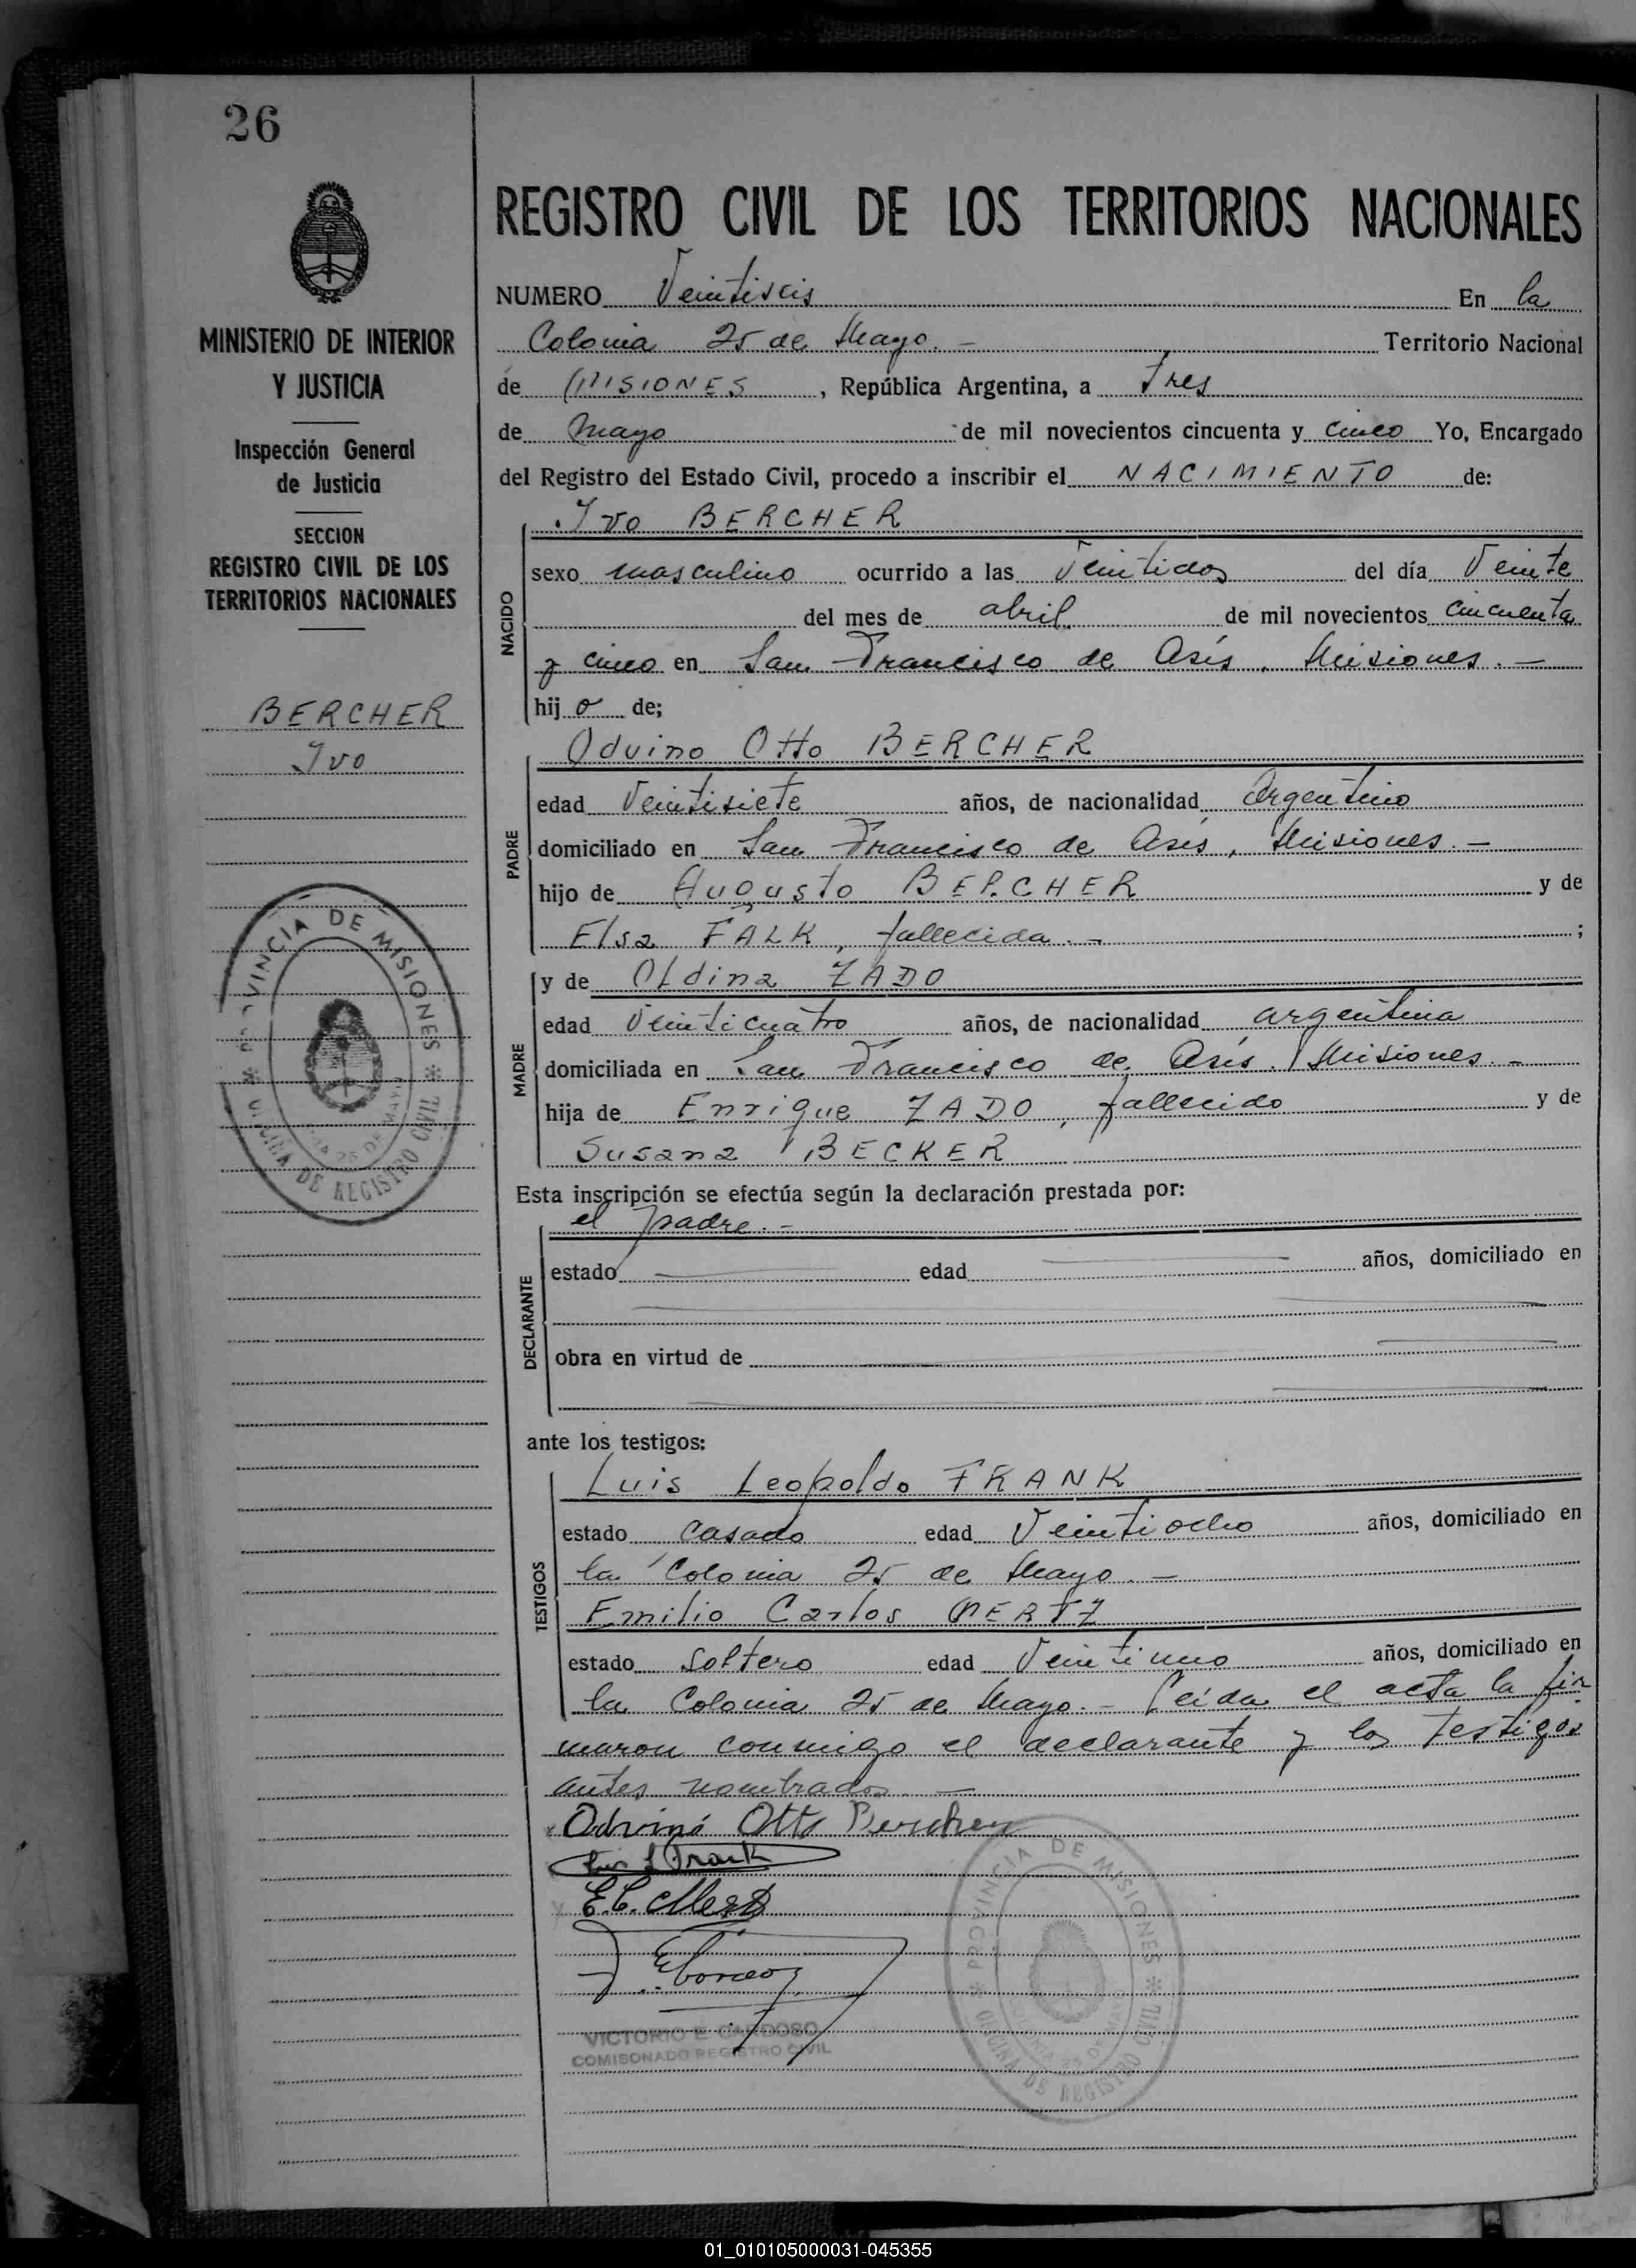 26
MINISTERIO DE INTERIOR
Y JUSTICIA
Inspección General
de Justicia
SECCION
REGISTRO CIVIL DE LOS
TERRITORIOS NACIONALES
BERCHER
Ivo
PROVINCIA DE MISIONES
OFICINA DE REGISTRO CIVIL
REGISTRO CIVIL DE LOS TERRITORIOS NACIONALES
NUMERO Veintiseis En la
Colonia 25 de Mayo. - Territorio Nacional
de MISIONES, República Argentina, a Tres
de Mayo de mil novecientos cincuenta y cinco Yo, Encargado
del Registro del Estado Civil, procedo a inscribir el NACIMIENTO de:
NACIDO
Ivo BERCHER
sexo masculino ocurrido a las Veintidos del día Veinte
del mes de abril de mil novecientos cincuenta
y cinco en San Francisco de Asís, Misiones. -
hijo de;
PADRE
Odvino Otto BERCHER
edad Veintisiete años, de nacionalidad Argentino
domiciliado en San Francisco de Asis, Misiones. -
hijo de Augusto BERCHER y de
Elsa FALK, fallecida. - ;
MADRE
y de Oldina ZADO
edad Veinticuatro años, de nacionalidad argentina
domiciliada en San Francisco de Asís. Misiones. -
hija de Enrique ZADO, fallecido y de
Susana BECKER
Esta inscripción se efectúa según la declaración prestada por:
DECLARANTE
el padre. -
estado edad años, domiciliado en
obra en virtud de
ante los testigos:
TESTIGOS
Luis Leopoldo FRANK
estado casado edad Veintiocho años, domiciliado en
la Colonia 25 de Mayo. -
Emilio Carlos MERTZ
estado Soltero edad Veintiuno años, domiciliado en
la Colonia 25 de Mayo. - Leída el acta la fir
maron conmigo el declarante y los testigos
antes nombrados. -
Odvino Otto Bercher
Luis L Frank
E.C. Mertz
VICTORIO E CARDOSO
COMISONADO REGISTRO CIVIL
PROVINCIA DE MISIONES
OFICINA DE REGISTRO CIVIL
01_010105000031-045355